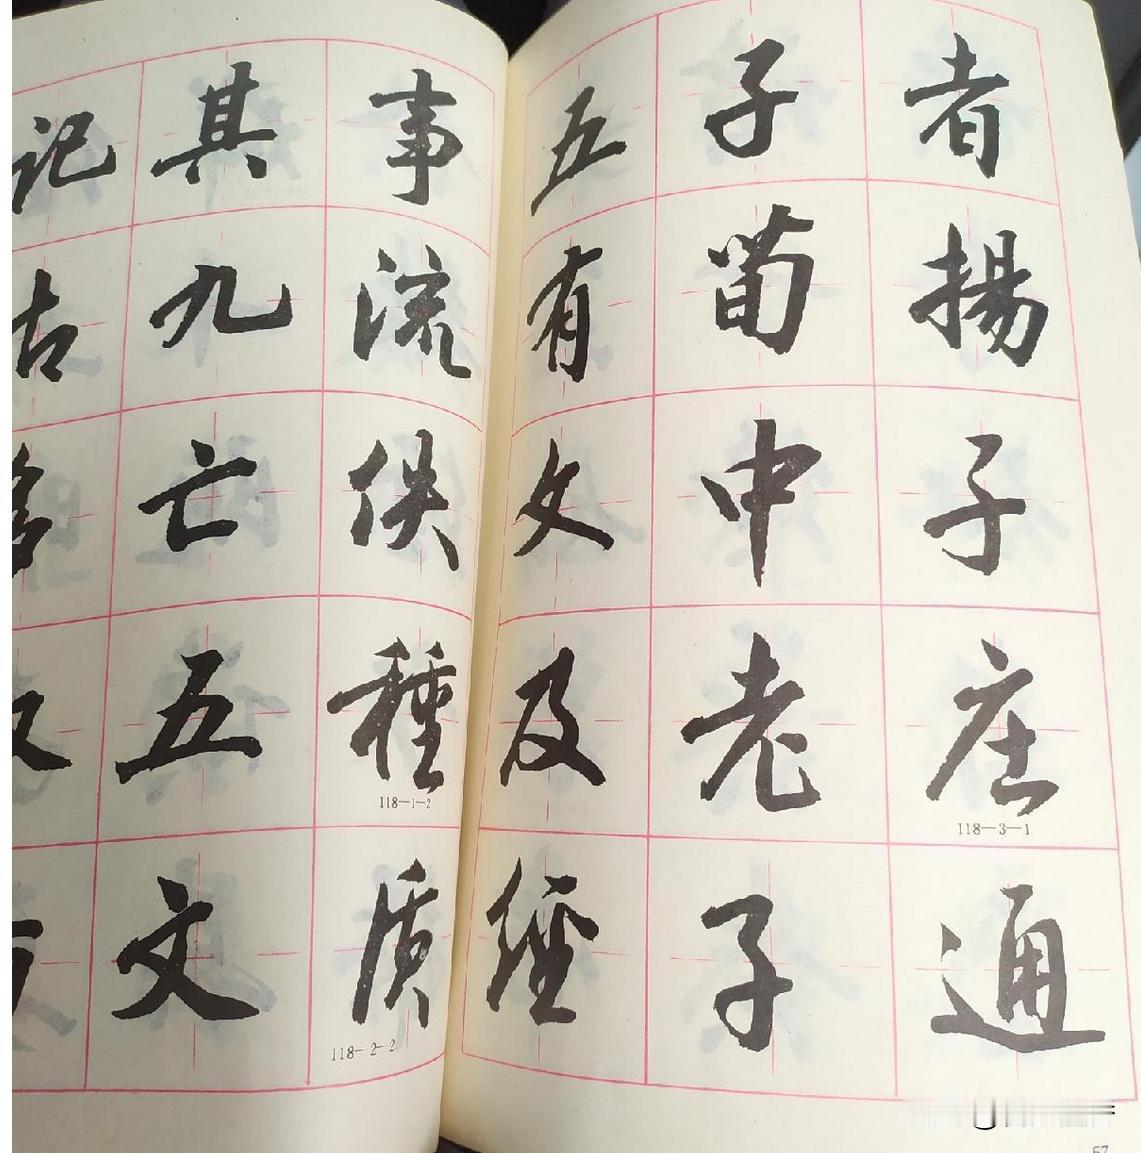 記其事
古九流
亡佚
五種
118—1—2
文质
118—2—2
五子者
有荀揚
文中子
及老庄
118—3—1
經子通
57